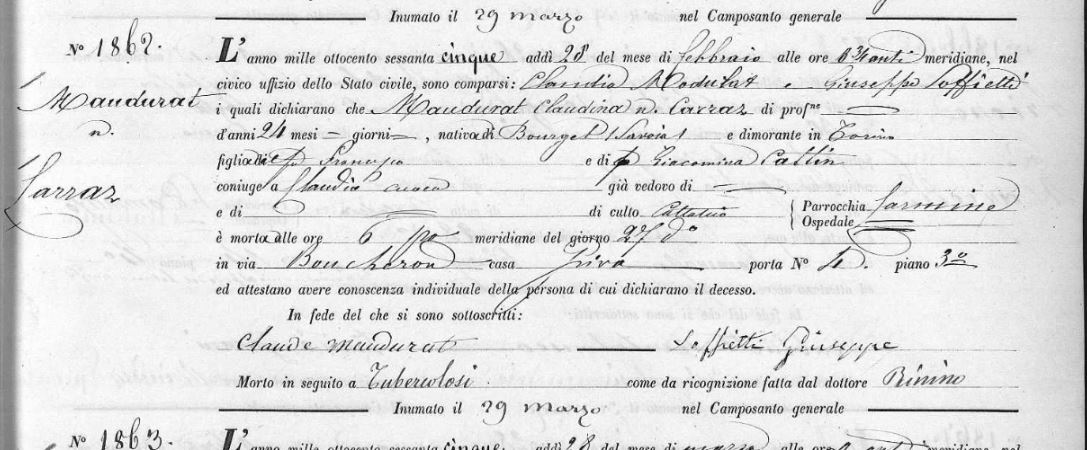 Inumato il 29 marzo nel Camposanto generale
N° 1862. L'anno mille ottocento sessanta cinque addì 28 del mese di febbraio alle ore meridiane, nel
civico uffizio dello Stato civile, sono comparsi: Claudio Modulat e Giuseppe Soffietti
Maudurat i quali dichiarano che Maudurat Claudina n. Carraz di prof.ne
n. d'anni 24 mesi = giorni = , nativa di Bourget (Savoia) e dimorante in Torino
figlia di Francesco e di Giacomina Cattin
Carraz coniuge a Claudio già vedovo di
e di di culto Cattolico { Parrocchia Carmine
Ospedale
è morta alle ore 6 po meridiane del giorno 27 do
in via Boucheron casa Riva porta N° 4. piano 3°
ed attestano avere conoscenza individuale della persona di cui dichiarano il decesso.
In fede del che si sono sottoscritti:
Claude Maudurat Soffietti Giuseppe
Morto in seguito a Tubercolosi come da ricognizione fatta dal dottore Rinino
Inumato il 29 marzo nel Camposanto generale
N° 1863. L'anno mille ottocento sessanta cinque addì 28 del mese di marzo alle ore meridiane, nel